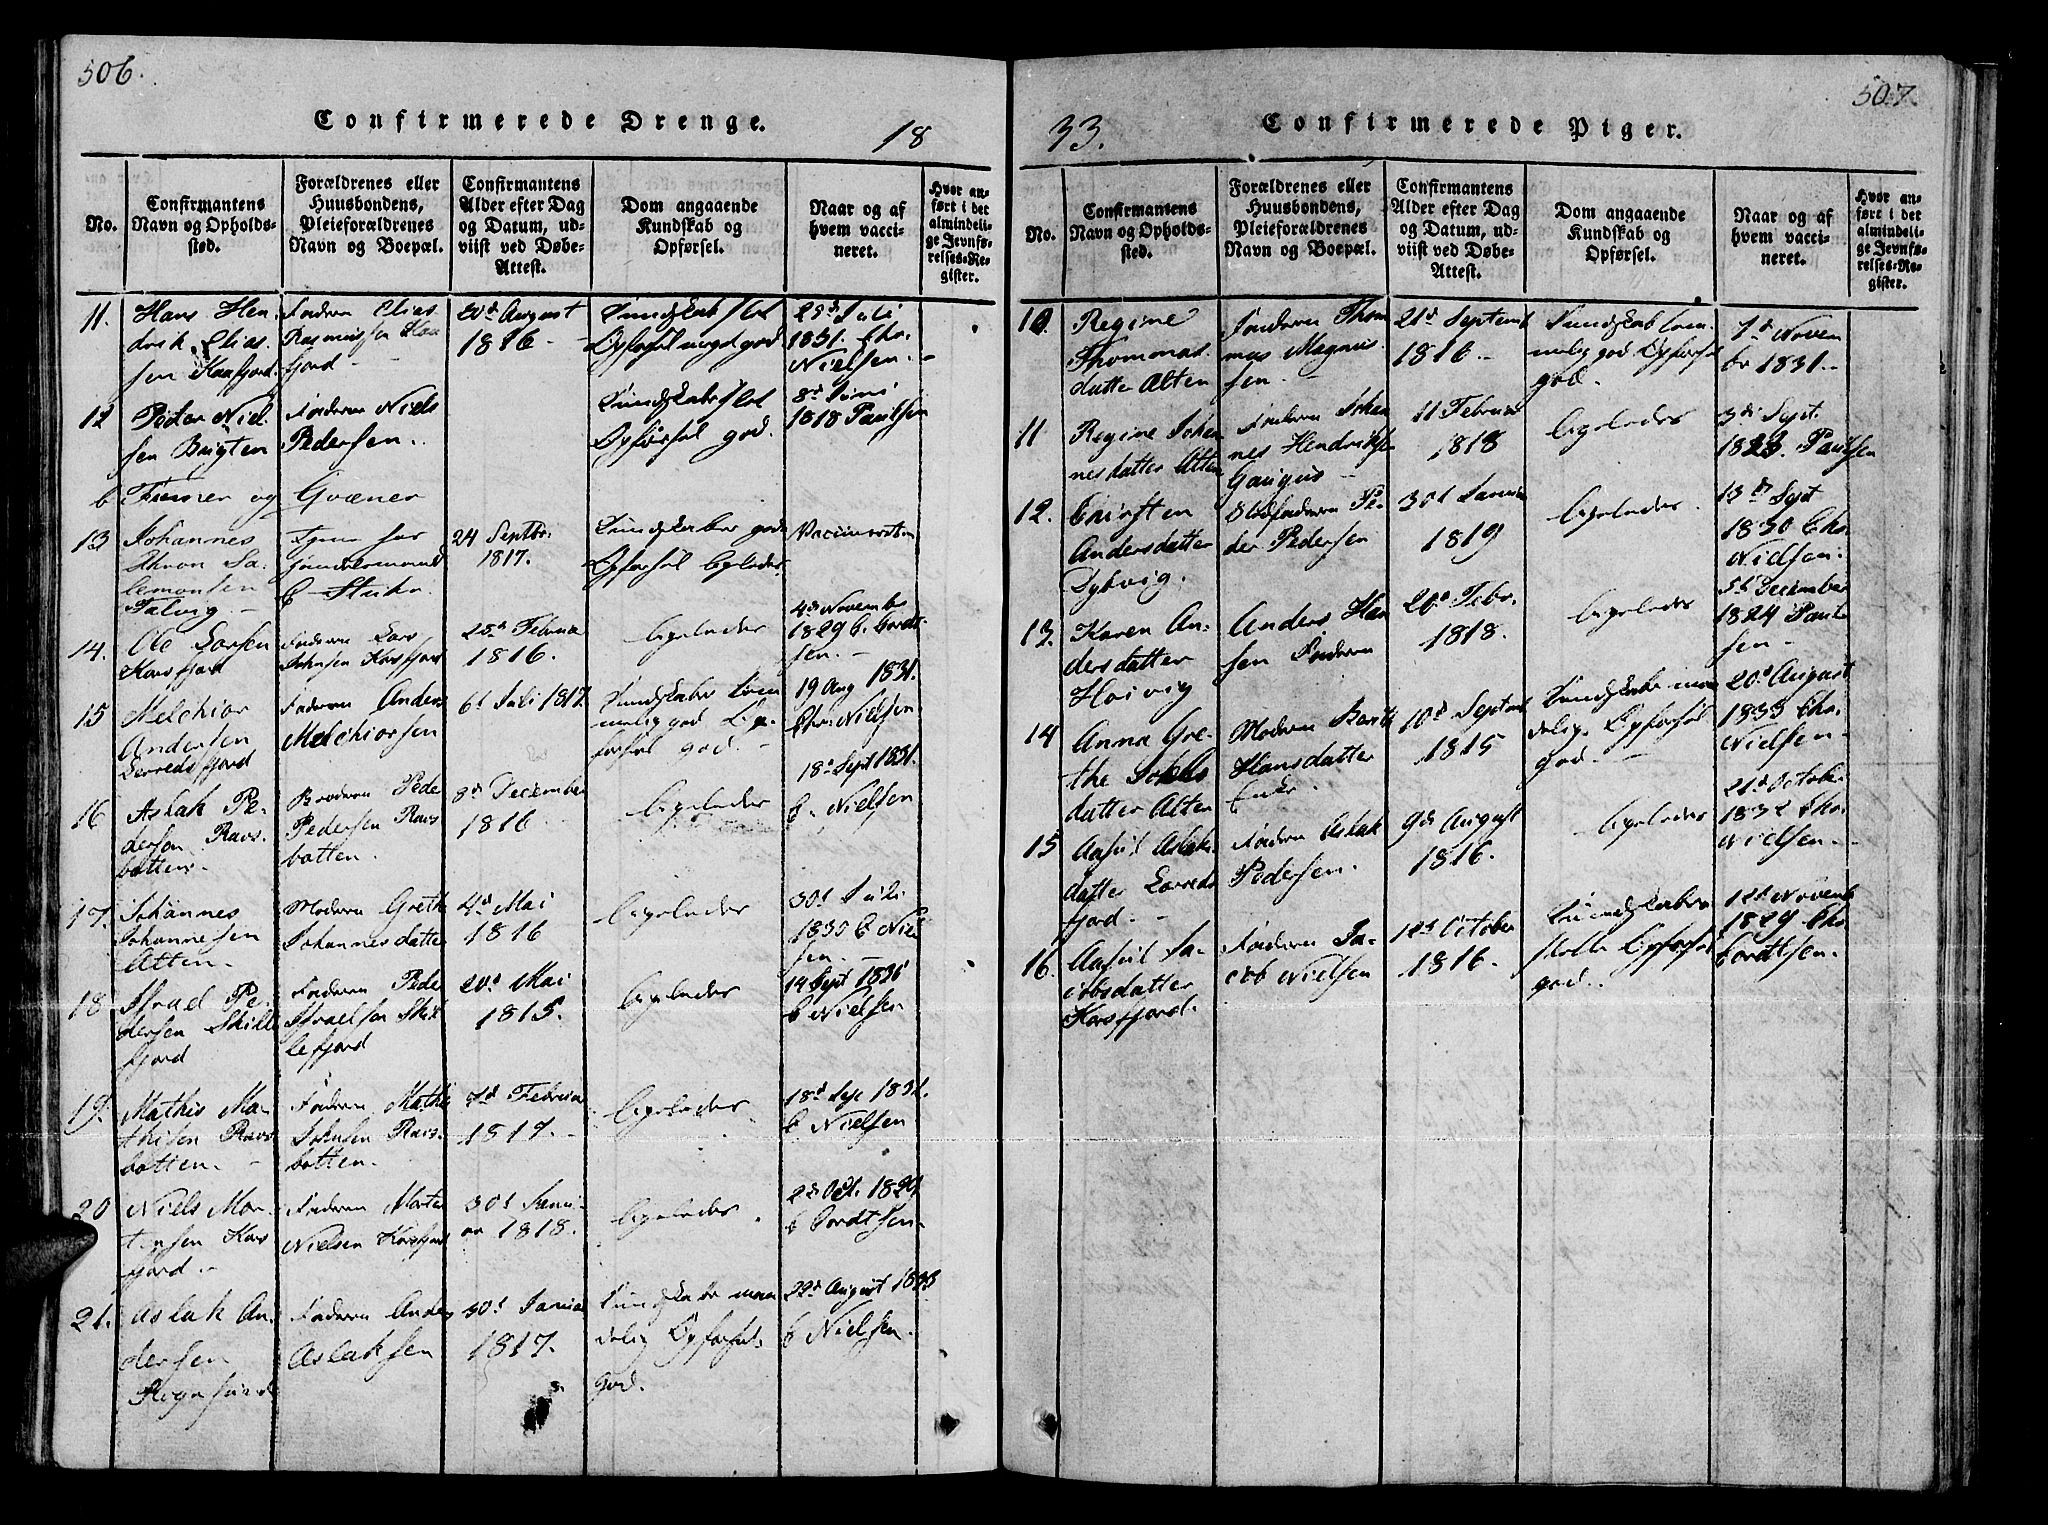 506.
Confirmerede Drenge.
18
No.
Confirmantens
Navn og Opholds-
sted.
Forældrenes eller
Huusbondens,
Pleieforældrenes
Navn og Boepæl.
Confirmantens
Alder efter Dag
og Datum, ud-
viist ved Døbe-
Attest.
Dom angaaende
Kundskab og
Opførsel.
Naar og af
hvem vacci-
neret.
Hvor an-
ført i det
almindeli-
ge Jevnfø-
relses-Re-
gister.
11.
Hans Hen-
drik Elias-
sen Kaafjord.
Faderen Elias
Rasmussen Kaa
fjord
20d August
1816
Kundskab slet
Opførsel meget god
29d Juli
1831. Chr.
Nielsen.
12
Peder Niel
sen Bugten
Faderen Niels
Pedersen.
Kundskab slet
Opførsel god.
8d Juni
1818 Paulsen
b Finner og Qvæner
13
Johannes
Thron Sa-
lemonsen
Talvig.
24 Septbr.
1817.
Kundskaber gode
Opførsel ligeledes.
14.
Ole Larsen
Korsfjord
Faderen Lars
Johnsen Korsfjord
25d Februar
1816.
ligeledes
4d November
1829 C. Cordt-
sen.
15
Melchior
Andersen
Lerredsfjord
Faderen Anders
Melchiorsen
6d Juli 1817.
Kundskaber tem
melig god Op-
førsel god.
19 Aug 1831.
Chr. Nielsen
16
Aslak Pe-
dersen Ravs-
botten.
Broderen Peder
Pedersen Ravs
botten.
8d December
1816
ligeledes
18d Sept 1831.
C. Nielsen
17.
Johannes
Johannesen
Alten.
Moderen Grethe
Johannesdatter
4d Mai
1816
ligeledes
30d Juli
1830 C Niel
sen.
18
Israel Pe-
dersen Skille
fjord
Faderen Peder
Israelsen Skil
lefjord
20d Mai
1815.
ligeledes
14 Sept 1831
C Nielsen
19.
Mathis Ma-
thisen Ravs
botten.
Faderen Mathis
Johnsen Ravs-
botten.
7d Februar
1817.
ligeledes
18d Sep 1831.
C Nielsen
20
Niels Mor-
tensen Kors
fjord.
Faderen Morten
Nielsen Korsfjord
30d Janu-
ar 1818.
ligeledes
2d Oct. 1829
C Cordtsen
21.
Aslak An-
dersen
Rognsund
Faderen Anders
Aslaksen
30d Januar
1817.
Kundskaber maa
delig Opførsel
god.
22d August 1833
C Nielsen.
507.
33.
Confirmerede Piger.
No.
Confirmantens
Navn og Opholds-
sted.
Forældrenes eller
Huusbondens,
Pleieforældrenes
Navn og Boepæl.
Confirmantens
Alder efter Dag
og Datum, ud-
viist ved Døbe-
Attest.
Dom angaaende
Kundskab og
Opførsel.
Naar og af
hvem vacci-
neret.
Hvor an-
ført i det
almindeli-
ge Jevnfø-
relses-Re-
gister.
10.
Regine
Thommas
datter Alten
Faderen Thom
mas Magnus
sen.
21d Septemb
1816.
Kundskab tem-
melig god Opførsel
god.
7d Novem
br 1831.
11
Regine Johan
nesdatter Alten
Faderen Johan
nes Hendriksen
11 Februar
1818
ligeledes
3d Sept.
1823. Paulsen
12.
Kirsten
Andersdatter
Dybvig.
Stedfaderen Pe-
der Pedersen
30d Januar
1819
ligeledes
13d Sept
1830 Chr.
Nielsen.
13.
Karen An-
dersdatter
Anders Han
sen Faderen
20d Febr.
1818.
ligeledes
5d December
1824 Paul-
sen
14
Anna Gre-
the
datter Alten
Moderen Berit
Hansdatter
Enke.
10d Septemb
1815
Kundskaber maa
delige Opførsel
god.
20d August
1833 Chr.
Nielsen
15
Aslak-
datter Lerreds
fjord.
Faderen Aslak
Pedersen.
9d August
1816.
ligeledes
21d October
1832 Chr.
Nielsen.
16.
Ja-
cobsdatter
Korsfjord.
Faderen Ja-
cob Nielsen
12d October
1816.
Kundskaber
slette Opførsel
god.
12d Novemb
1829 Chr.
Cordtsen.